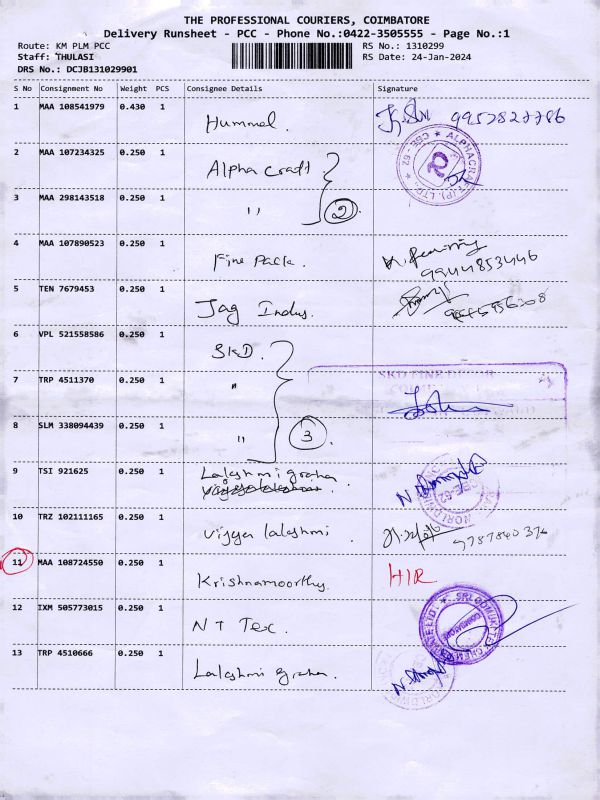 THE PROFESSIONAL COURIERS, COIMBATORE
Delivery Runsheet - PCC - Phone No.:0422-3505555 - Page No.:1
Route: KM PLM PCC RS No.: 1310299
Staff: THULASI RS Date: 24-Jan-2024
DRS No.: DCJB131029901
S No Consignment No Weight PCS Consignee Details Signature
1 MAA 108541979 0.430 1 Hummel. 9952827786
2 MAA 107234325 0.250 1 Alpha craft
ALPHACRAFT (P). LTD. CBE - 62
3 MAA 298143518 0.250 1 " 2
4 MAA 107890523 0.250 1 Fine Pack. 9944853446
5 TEN 7679453 0.250 1 Jag Indus.
6 VPL 521558586 0.250 1 SKD.
7 TRP 4511370 0.250 1 "
8 SLM 338094439 0.250 1 " 3
9 TSI 921625 0.250 1 Lakshmi graha
10 TRZ 102111165 0.250 1 vijya lakshmi.
11 MAA 108724550 0.250 1 Krishnamoorthy. HIR
12 IXM 505773015 0.250 1 N T Tex.
13 TRP 4510666 0.250 1 Lakshmi graha.